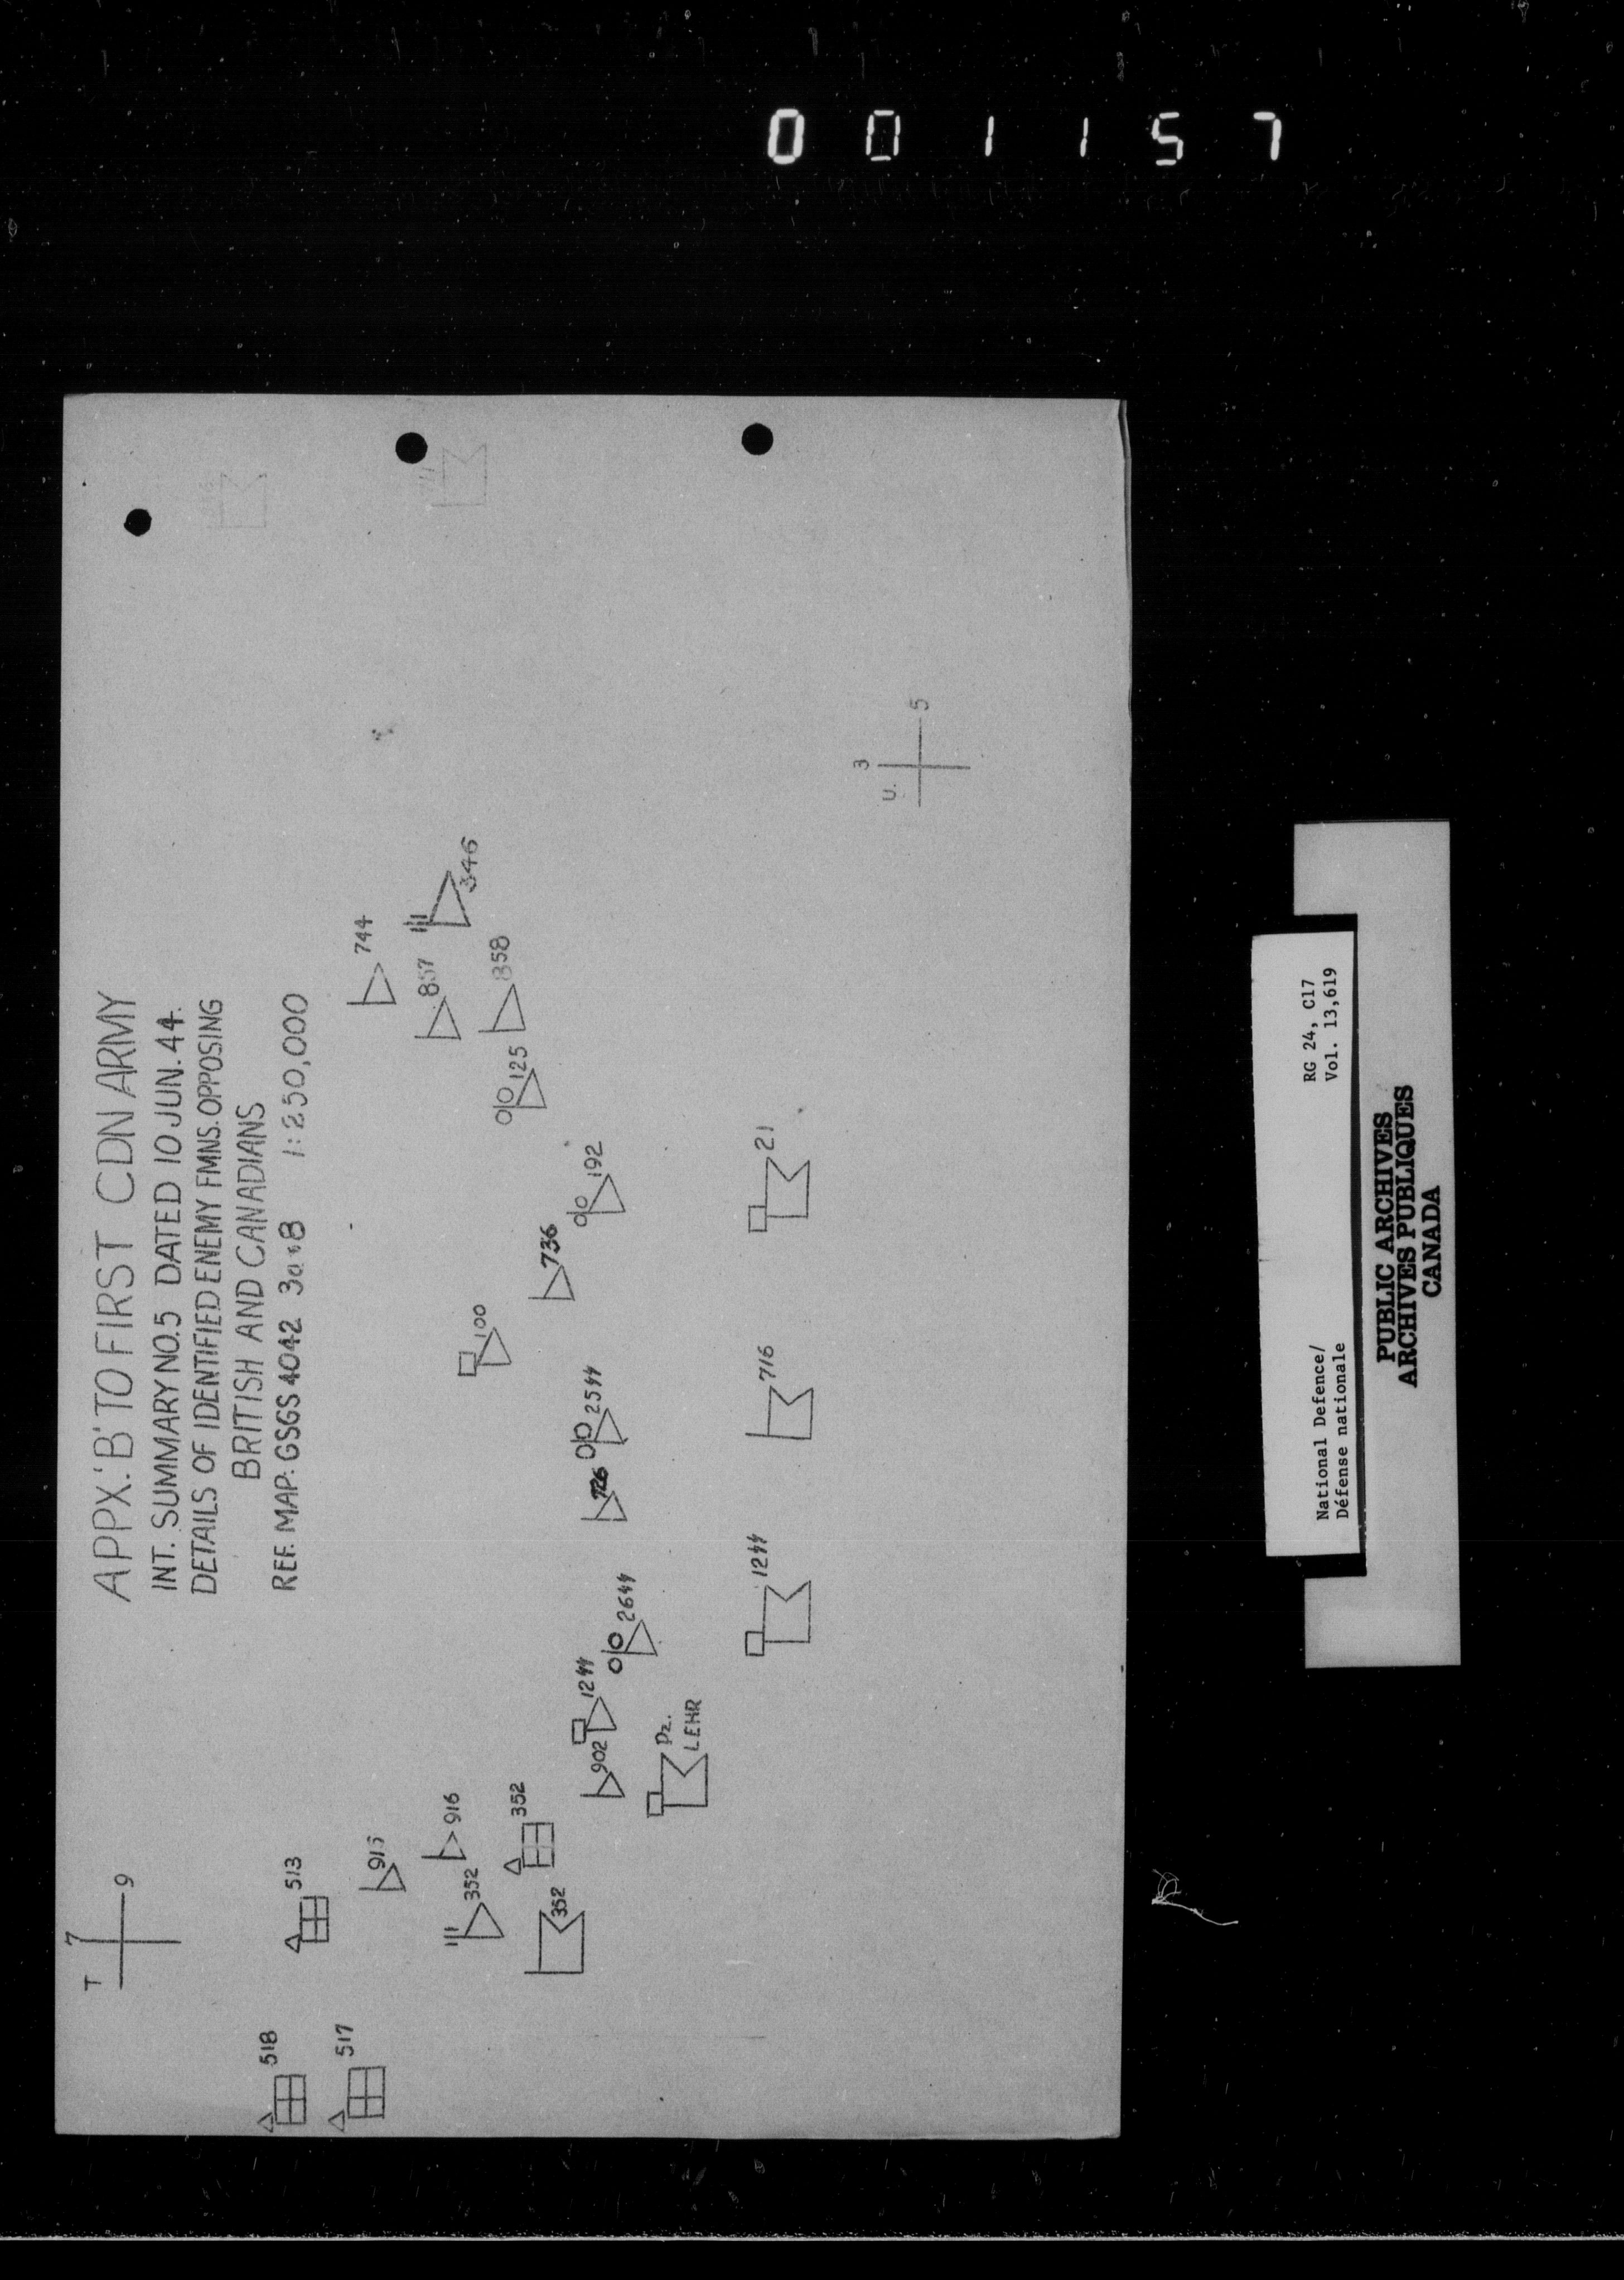 001157
APPX. 'B' TO FIRST CDN ARMY
INT. SUMMARY NO.5 DATED 10 JUN. 44.
DETAILS OF IDENTIFIED ENEMY FMNS. OPPOSING
BRITISH AND CANADIANS
REF. MAP: GSGS 4042 3a & 8 1:250,000
T 7
9
518
517
513
915
916
352
352
352
902
12 ϟϟ
Pz.
LEHR
26 ϟϟ
726
25 ϟϟ
100
736
192
125
744
857
858
346
12 ϟϟ
716
21
U. 3
5
National Defence/
Défense nationale
RG 24, C17
Vol. 13,619
PUBLIC ARCHIVES
ARCHIVES PUBLIQUES
CANADA